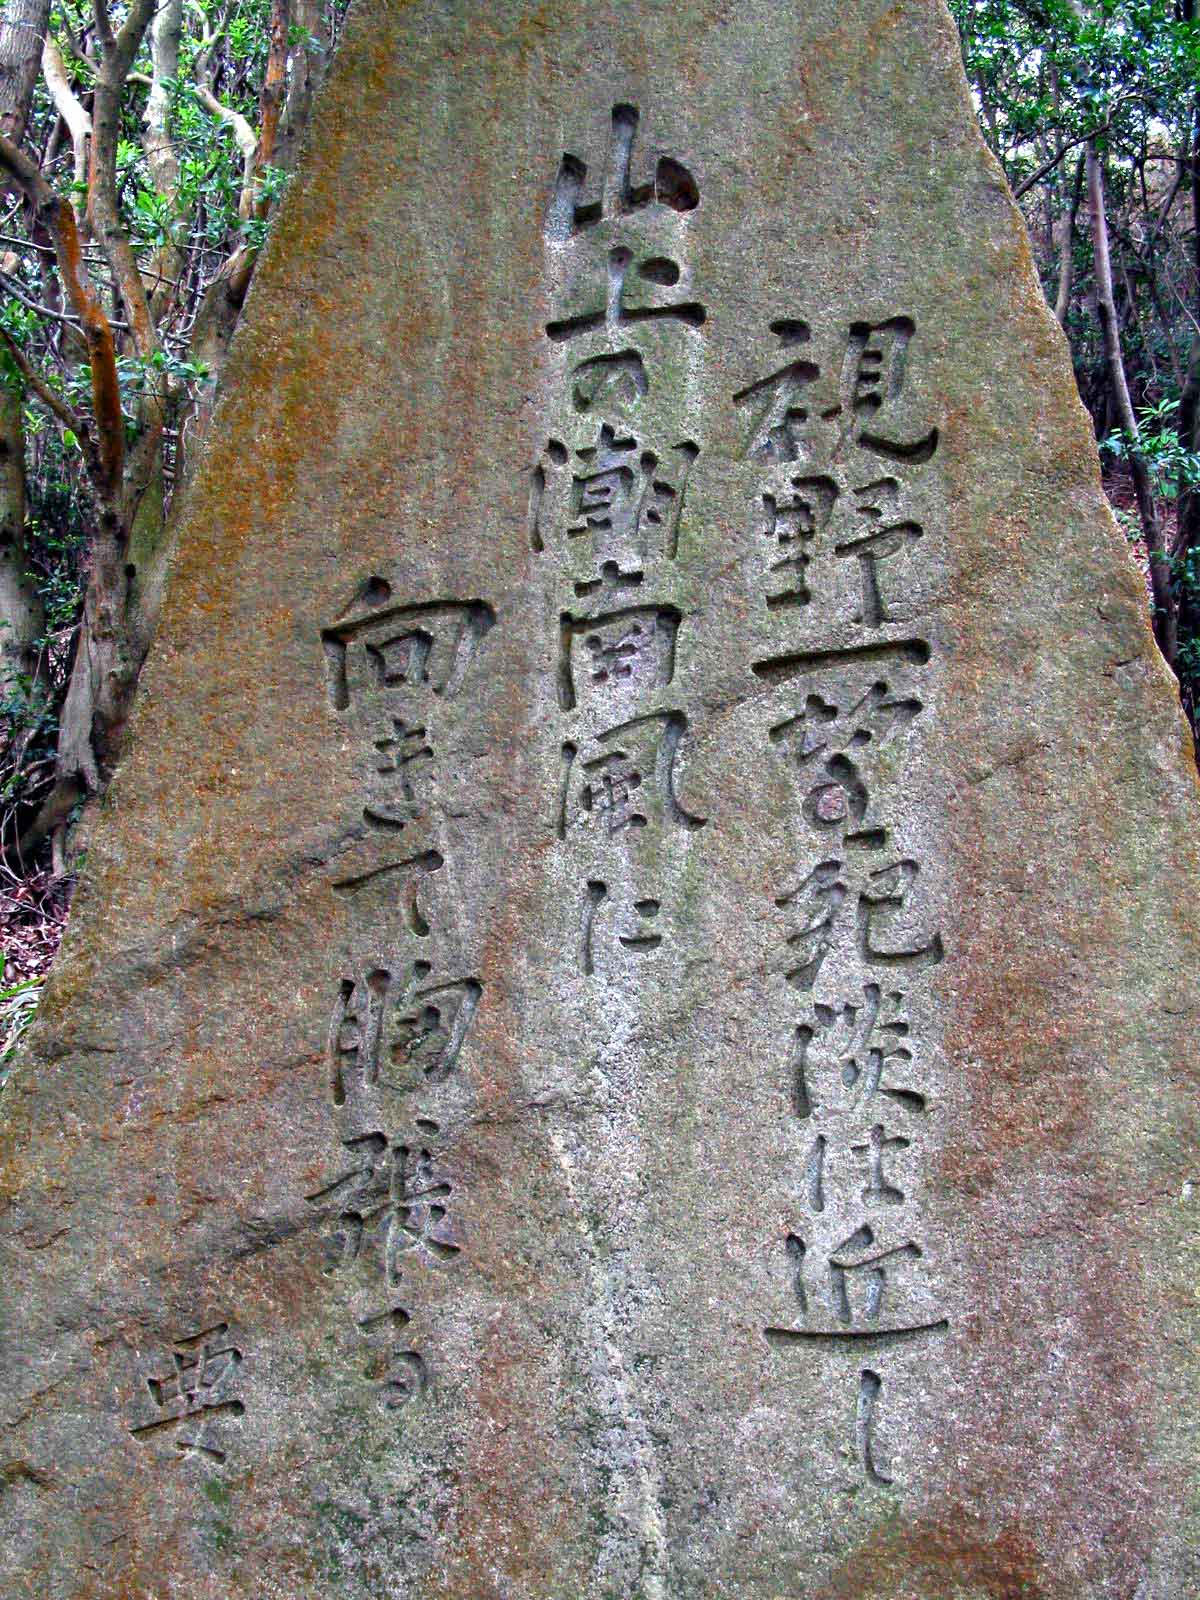 視野一望紀淡は近し
山上の潮南風に
向きて胸張る